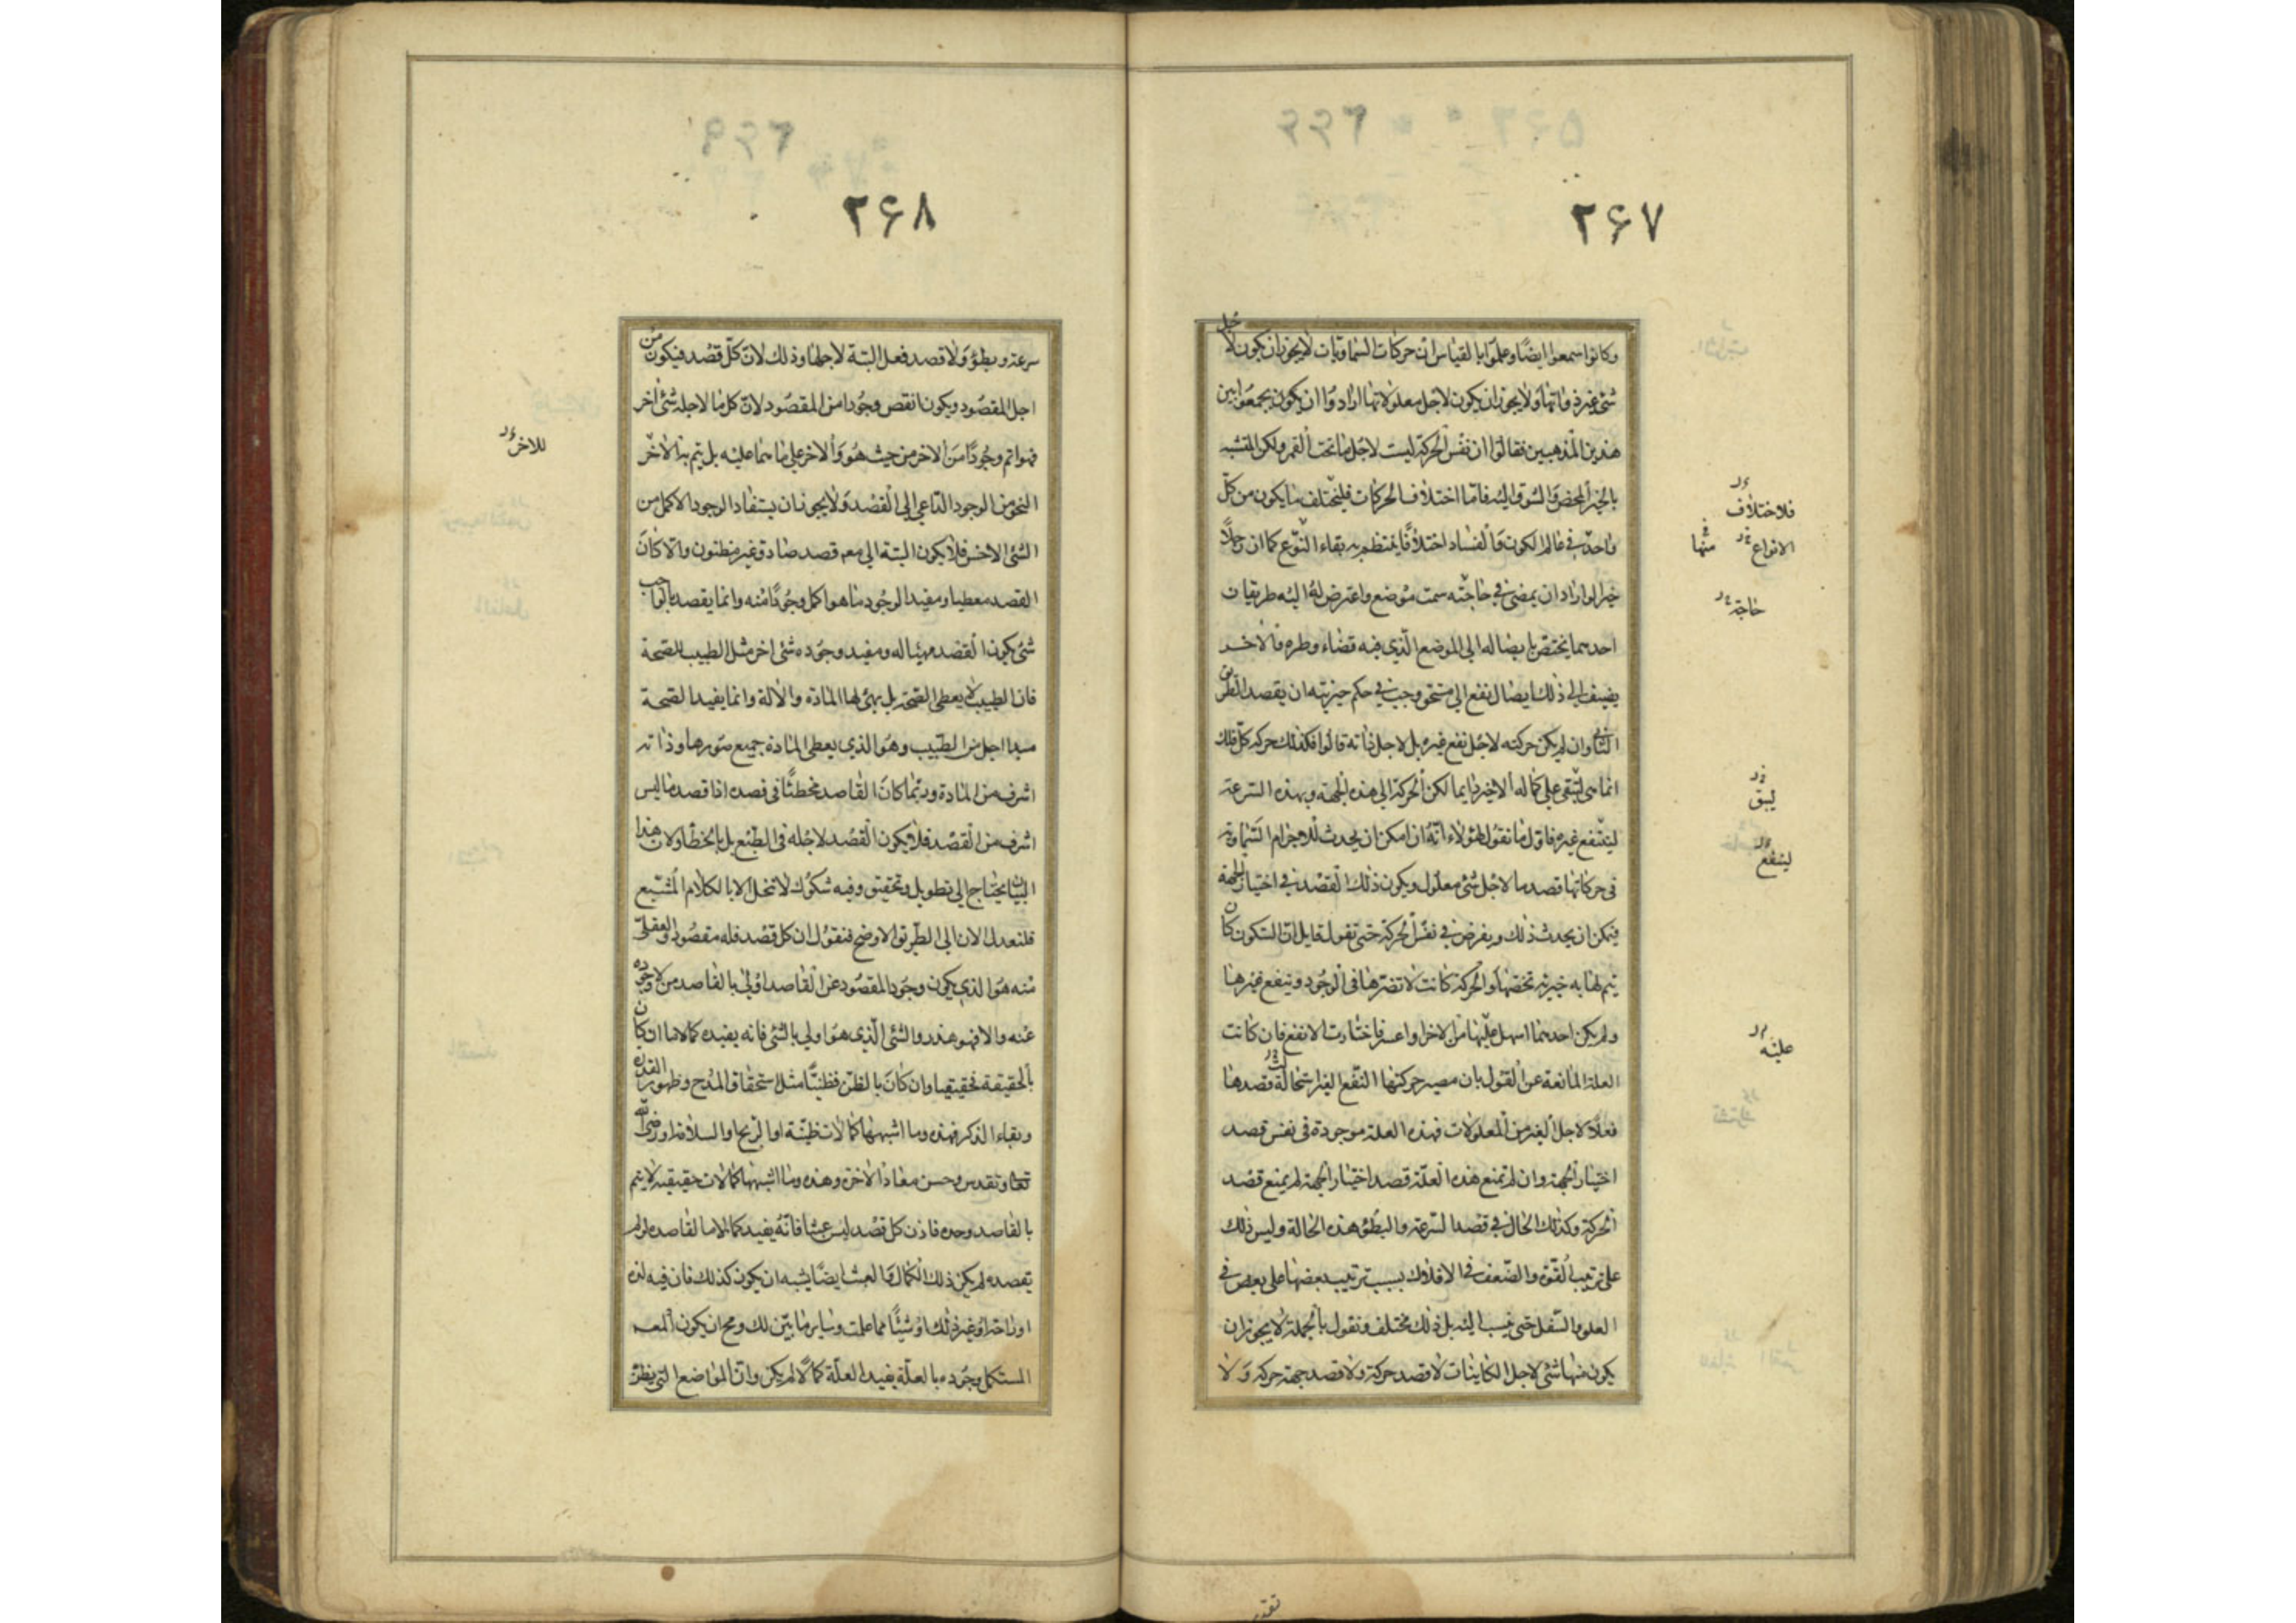 ۲۶۷
وكانوا سمعوا ايضًا وعلموا بالقياس ان حركات السماويات لايجوز ان يكون لاجل
شئ غير ذواتها ولايجوز ان يكون لاجل معلولاتها ارادوا ان يكون يجمعوا بين
هذين المذهبين فقالوا ان نفس الحركة ليست لاجل ما تحت القمر ولكن للتشبه
بالخير المحض والشوق اليه فاما اختلاف الحركات فليختلف ما يكون من كل
واحد في عالم الكون والفساد اختلافًا ينتظم به بقاء النوع كما ان رجلًا
خيرا لو اراد ان يمضي في حاجته سمت موضع واعترض له اليه طريقان
احدهما يختص بايصاله الى الموضع الذي فيه قضاء وطره والاخر
يضيف الى ذلك ايصال نفع الى مستحق وجب في حكم خيريته ان يقصد الطريق
الثاني وان لم يكن حركته لاجل نفع غيره بل لاجل ذاته قالوا فكذلك حركة كل فلك
انما هي لتبقى على كماله الاخير دايما لكن الحركة الى هذه الجهة وبهذه السرعة
لينتفع غيره فاول ما نقول لهؤلاء انه ان امكن ان يحدث للاجرام السماوية
في حركاتها قصد ما لاجل شئ معلول ويكون ذلك القصد في اختيار الجهة
فيمكن ان يحدث ذلك ويفرض في نفس الحركة حتى تقول قايل ان السكون كان
يتم لها به خيرية تخصها والحركة كانت لا تضرها في الوجود وينفع غيرها
ولم يكن احدهما اسهل عليها من الاخر او اعسر فاختارت الانفع فان كانت
العلة المانعة عن القول بان مصير حركتها النفع الغير استحالة قصدها
فعلًا لاجل الغير من المعلولات فهذه العلة موجودة في نفس قصد
اختيار الجهة وان لم تمنع هذه العلة قصد اختيار الجهة لم يمنع قصد
الحركة وكذلك الحال في قصد السرعة والبطؤ هذه الحالة وليس ذلك
على ترتيب القوة والضعف في الافلاك بسبب ترتيب بعضها على بعض في
العلو والسفل حتى ينسب اليه بل ذلك مختلف ونقول بالجملة لايجوز ان
يكون منها شئ لاجل الكاينات لا قصد حركة ولا قصد جهة حركة ولا
فلاختلاف
الانواع
منها
حاجة
ليبق
لينفع
عليه
۲۶۸
سرعة وبطؤ ولا قصد فعل البتة لاجلها وذلك لان كل قصد فيكون من
اجل المقصود ويكون انقص وجودا من المقصود لان كل ما لاجله شئ اخر
فهو اتم وجودًا من الاخر من حيث هو والاخر على ما هما عليه بل يتم به الاخر
النحو من الوجود الداعي الى القصد ولايجوز ان يستفاد الوجود الاكمل من
الشئ الاخس فلا يكون البتة الى معه قصد صادق غير مظنون والا كان
القصد معطيا ومفيدا لوجود ما هو اكمل وجودًا منه وانما يقصد بالواجب
شئ يكون القصد مهيئا له ومفيد وجوده شئ اخر مثل الطبيب للصحة
فان الطبيب لا يعطي الصحة بل يهيئ لها المادة والالة وانما يفيد الصحة
مبدا اجل من الطبيب وهو الذي يعطي المادة جميع صورها وذاته
اشرف من المادة وربما كان القاصد مخطئًا في قصده اذا قصد ما ليس
اشرف من القصد فلا يكون القصد لاجله في الطبع بل بالخطأ ولان هذا
البيان يحتاج الى تطويل وتحقيق وفيه شكوك لا تنحل الا بالكلام المشبع
فلنعدل الان الى الطريق الاوضح فنقول ان كل قصد فله مقصود والعقلي
منه هو الذي يكون وجود المقصود عن القاصد اولى بالقاصد من لا وجوده
عنه والا فهو هذر والشئ الذي هو اولى بالشئ فانه يفيده كمالا ما ان كان
بالحقيقة فحقيقيا وان كان بالظن فظنيًا مثل استحقاق المدح وظهور القدرة
وبقاء الذكر فهذه وما اشبهها كمالات ظنية او الربح او السلامة او رضى الله
تعالى وتقدس وحسن معاد الاخرة وهذه وما اشبهها كمالات حقيقية لا يتم
بالقاصد وحده فاذن كل قصد ليس عبثا فانه يفيد كمالا ما لقاصده لو لم
يقصده لم يكن ذلك الكمال والعبث ايضًا يشبه ان يكون كذلك فان فيه لذة
او راحة او غير ذلك او شيئًا مما علمت وساير ما بين لك ومح ان يكون المعـ
المستكمل وجوده بالعلة يفيد العلة كمالًا لم يكن وان المواضع التي يظن
للاخر